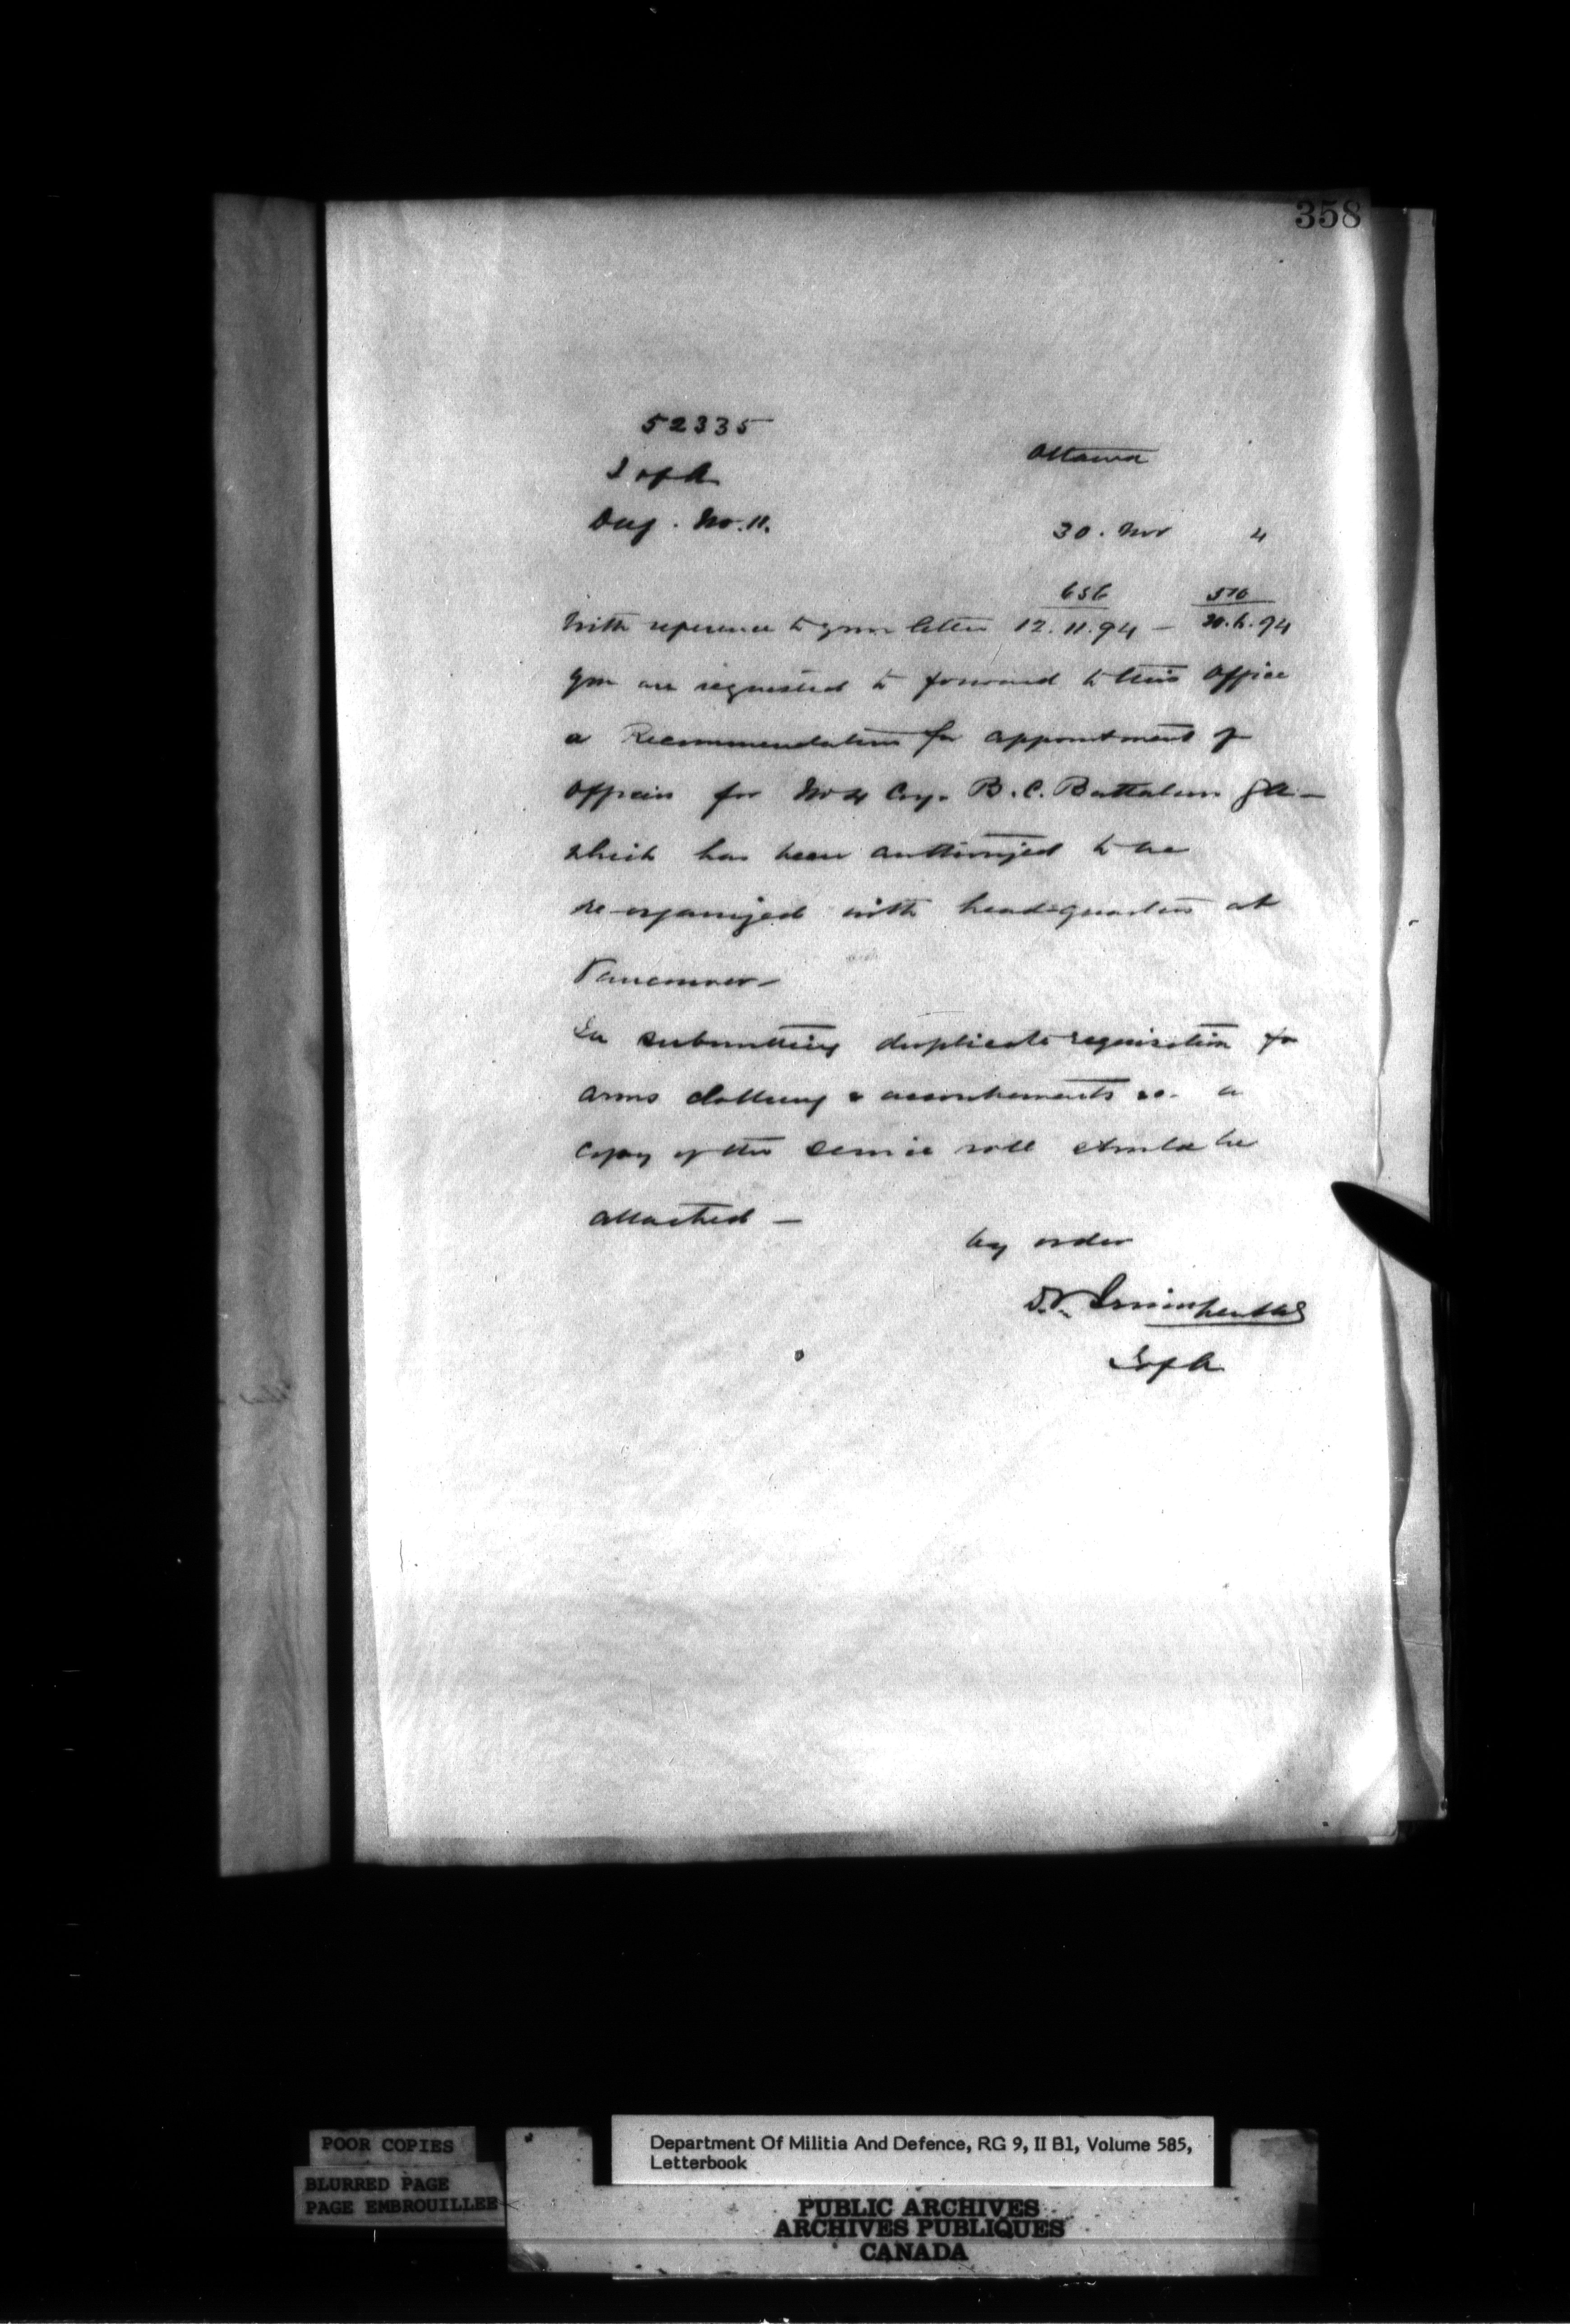 358
52335
I of A
DAG. No. 11.
Ottawa
30. Nov 4
656 576
With reference to your letter 12.11.94 — 30.6.94
you are requested to forward to this office
a Recommendation for appointment of
officers for No 4 Coy. B.C. Battalion GA —
which has been authorized to be
re-organized with headquarters at
Vancouver —
In submitting duplicate requisition for
arms clothing & accoutrements &c. a
copy of the service roll should be
attached —
by order
D.T. Irwin
I of A
POOR COPIES
BLURRED PAGE
PAGE EMBROUILLEE
Department Of Militia And Defence, RG 9, II B1, Volume 585,
Letterbook
PUBLIC ARCHIVES
ARCHIVES PUBLIQUES
CANADA